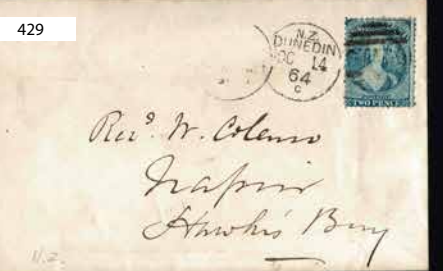 429
N.Z.
DUNEDIN
OC 14
64
C
TWO PENCE
Revd. W. Colenso
Napier
Hawke's Bay
N.Z.